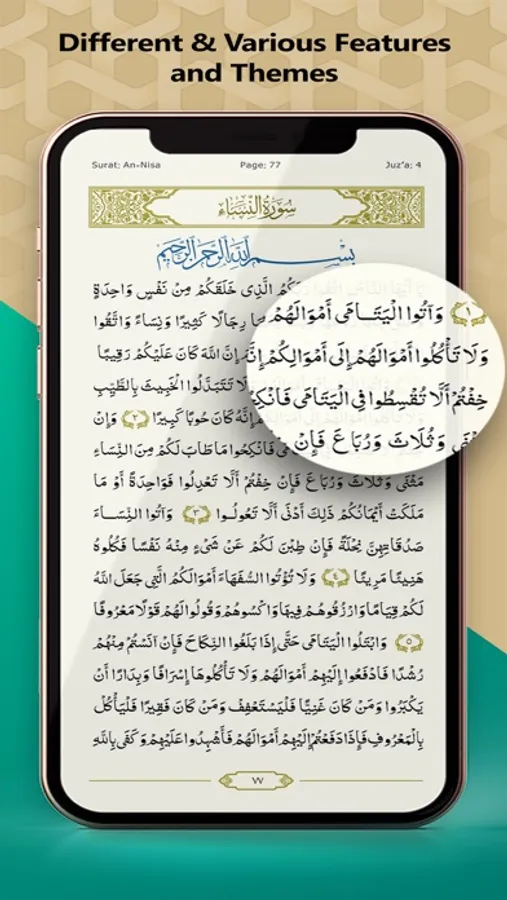 Different & Various Features
and Themes
Surat: An-Nisa
Page: 77
Juz'a: 4
سُورَةُ النِّسَاءِ
بِسْمِ اللَّهِ الرَّحْمَنِ الرَّحِيمِ
رَبَّكُمُ الَّذِي خَلَقَكُمْ مِنْ نَفْسٍ وَاحِدَةٍ
رِجَالًا كَثِيرًا وَنِسَاءً وَاتَّقُوا
إِنَّ اللَّهَ كَانَ عَلَيْكُمْ رَقِيبًا
وَلَا تَتَبَدَّلُوا الْخَبِيثَ بِالطَّيِّبِ
إِنَّهُ كَانَ حُوبًا كَبِيرًا ٢ وَإِنْ
فَانْكِحُوا مَا طَابَ لَكُمْ مِنَ النِّسَاءِ
مَثْنَى وَثُلَاثَ وَرُبَاعَ فَإِنْ خِفْتُمْ أَلَّا تَعْدِلُوا فَوَاحِدَةً أَوْ مَا
مَلَكَتْ أَيْمَانُكُمْ ذَلِكَ أَدْنَى أَلَّا تَعُولُوا ٣ وَآتُوا النِّسَاءَ
صَدُقَاتِهِنَّ نِحْلَةً فَإِنْ طِبْنَ لَكُمْ عَنْ شَيْءٍ مِنْهُ نَفْسًا فَكُلُوهُ
هَنِيئًا مَرِيئًا ٤ وَلَا تُؤْتُوا السُّفَهَاءَ أَمْوَالَكُمُ الَّتِي جَعَلَ اللَّهُ
لَكُمْ قِيَامًا وَارْزُقُوهُمْ فِيهَا وَاكْسُوهُمْ وَقُولُوا لَهُمْ قَوْلًا مَعْرُوفًا
٥ وَابْتَلُوا الْيَتَامَى حَتَّى إِذَا بَلَغُوا النِّكَاحَ فَإِنْ آنَسْتُمْ مِنْهُمْ
رُشْدًا فَادْفَعُوا إِلَيْهِمْ أَمْوَالَهُمْ وَلَا تَأْكُلُوهَا إِسْرَافًا وَبِدَارًا أَنْ
يَكْبَرُوا وَمَنْ كَانَ غَنِيًّا فَلْيَسْتَعْفِفْ وَمَنْ كَانَ فَقِيرًا فَلْيَأْكُلْ
بِالْمَعْرُوفِ فَإِذَا دَفَعْتُمْ إِلَيْهِمْ أَمْوَالَهُمْ فَأَشْهِدُوا عَلَيْهِمْ وَكَفَى بِاللَّهِ
٧٧
١ وَآتُوا الْيَتَامَى أَمْوَالَهُمْ
وَلَا تَأْكُلُوا أَمْوَالَهُمْ إِلَى أَمْوَالِكُمْ إِنَّهُ
خِفْتُمْ أَلَّا تُقْسِطُوا فِي الْيَتَامَى فَانْكِحُ
مَثْنَى وَثُلَاثَ وَرُبَاعَ فَإِنْ